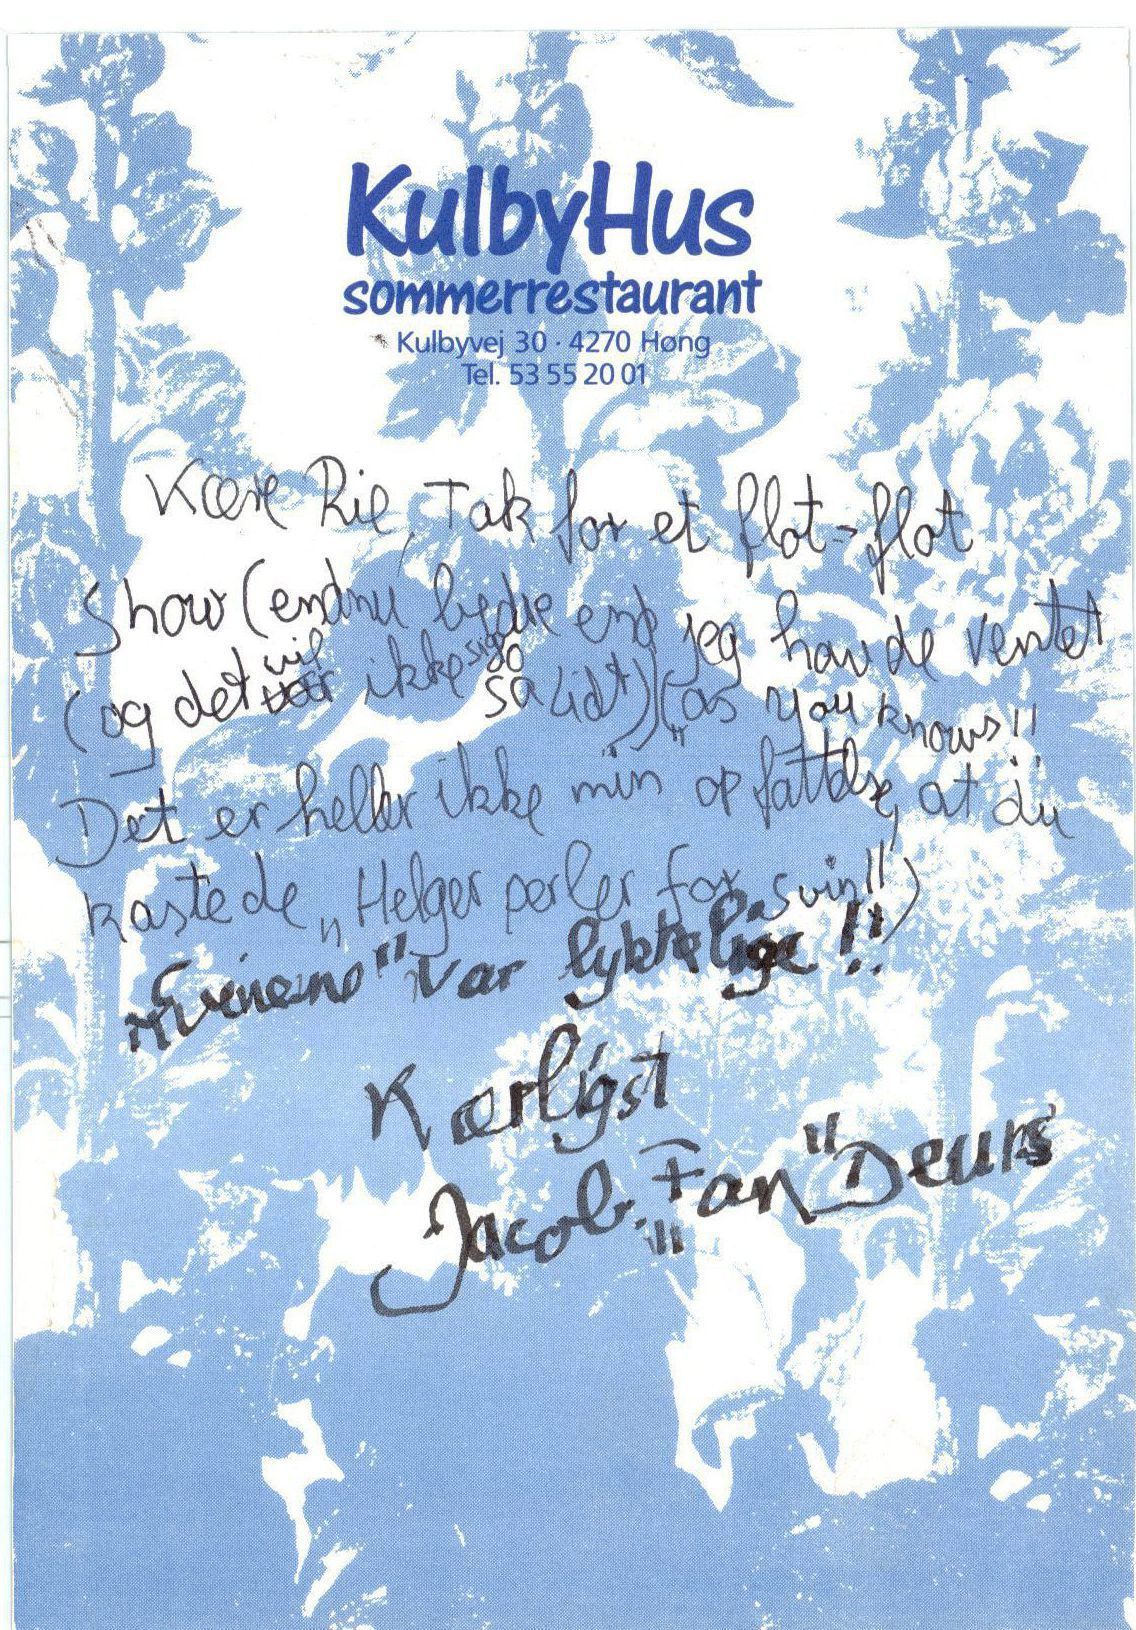 KulbyHus
sommerrestaurant
Kulbyvej 30 · 4270 Høng
Tel. 53 55 20 01
Kære Rie, Tak for et flot-flot
Show (endnu bedre end jeg havde ventet
(og det vil ikke sige så lidt)) (as you knows!!
Det er heller ikke "min" opfattelse, at du
kastede „Helger perler for svin!!)
„Svinene" var lykkelige!!
Kærligst
Jacob. „Fan" Deurs